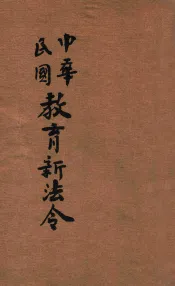 中華
民國
教育新法令